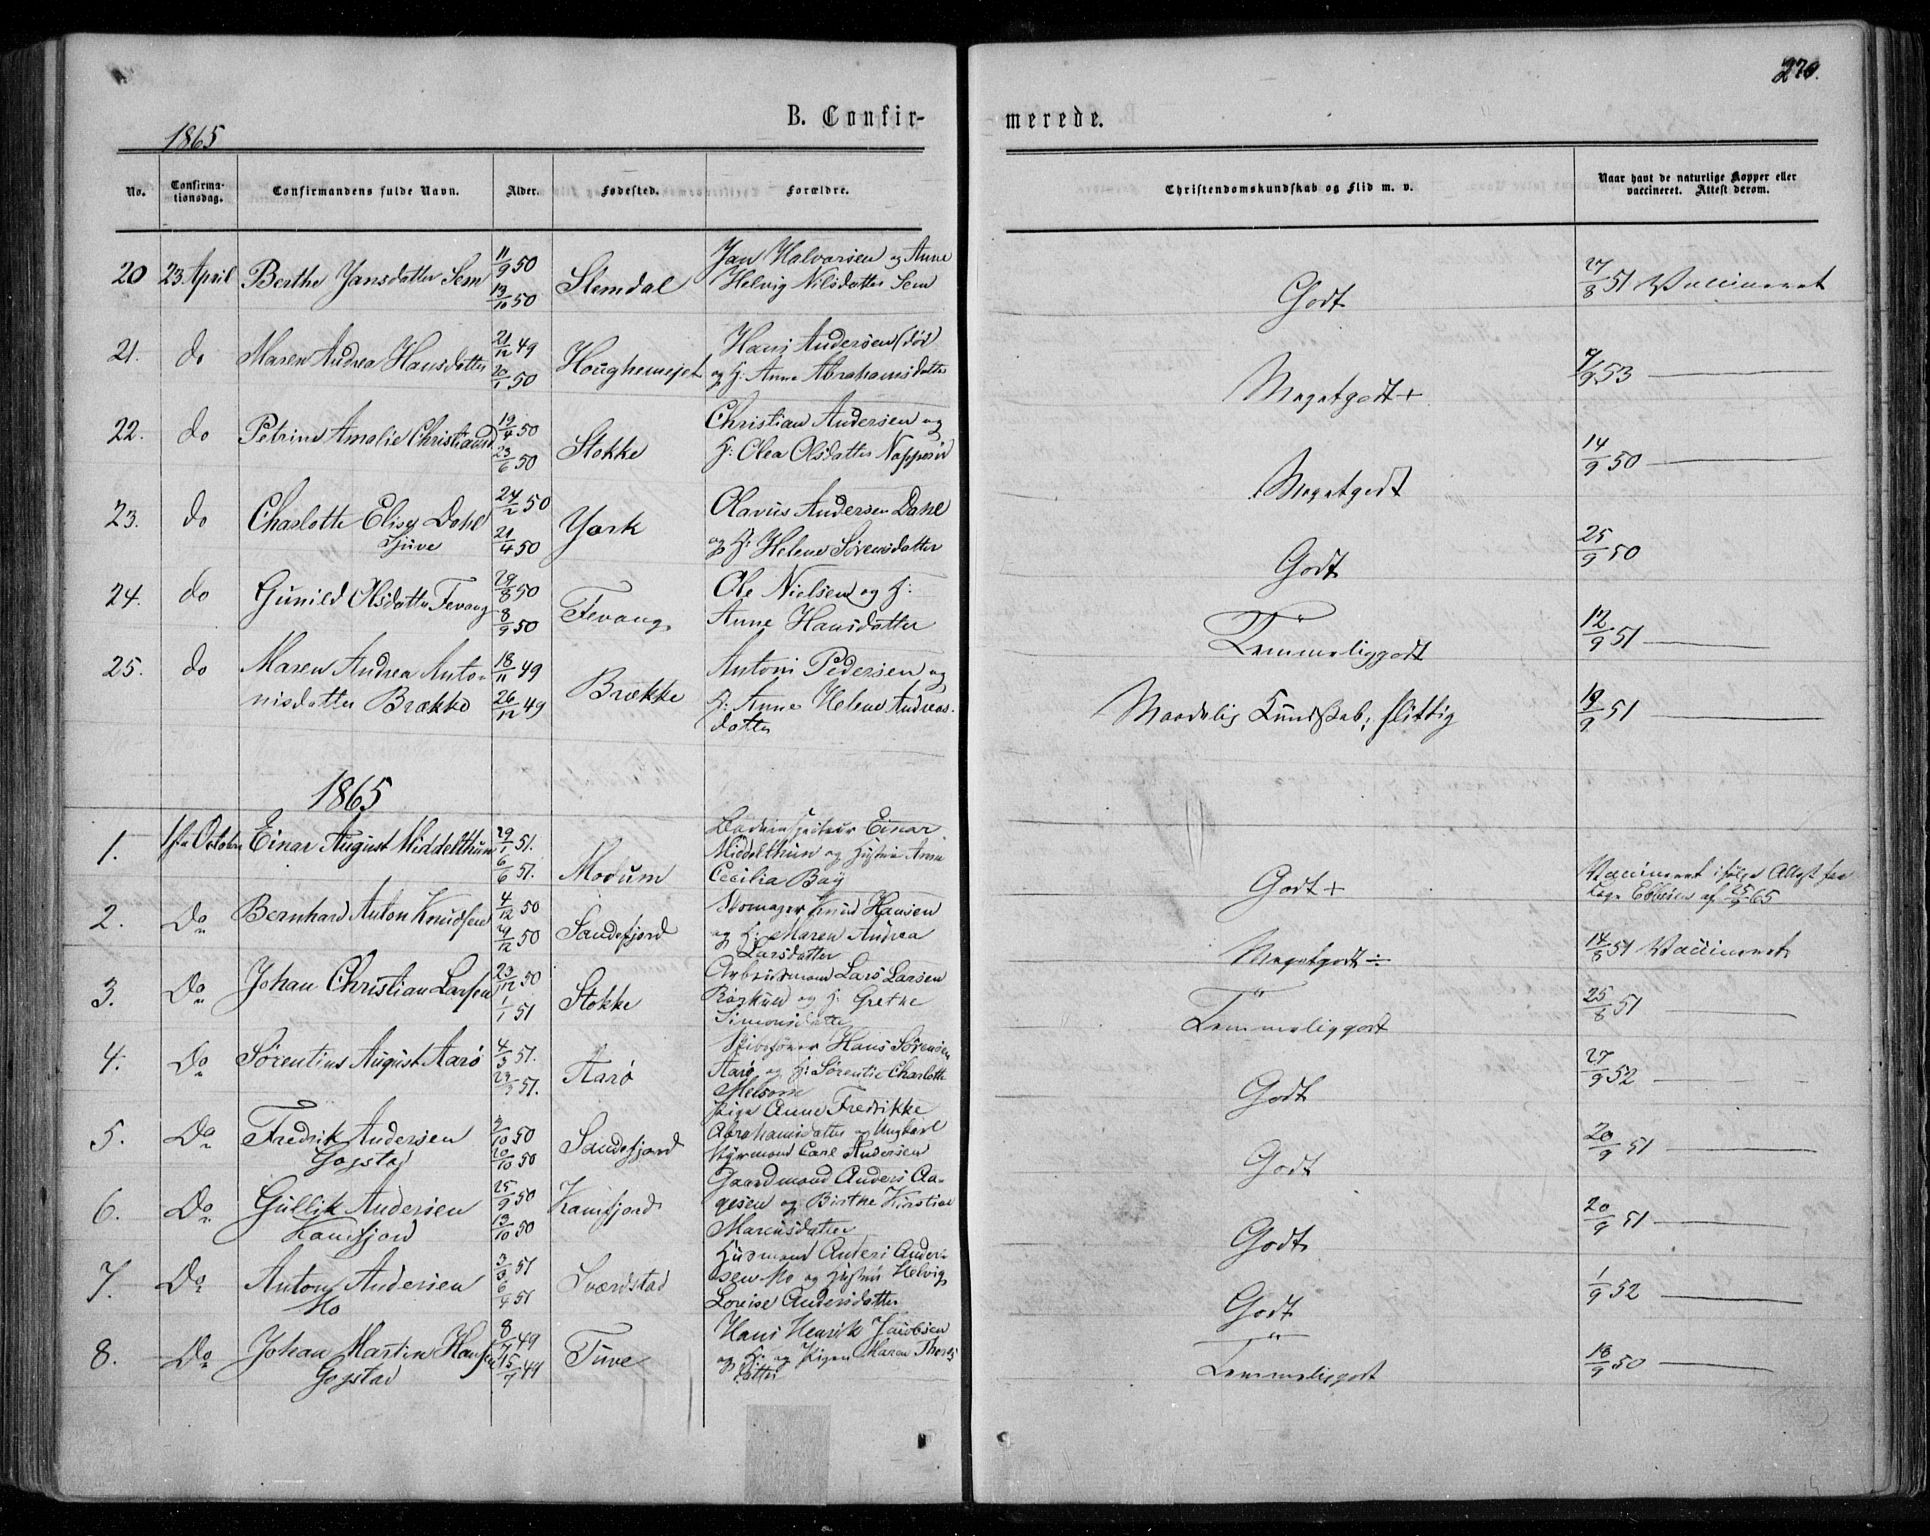 270.
B. Confirmerede.
1865
No. Confirmationsdag. Confirmandens fulde Navn. Alder. Fødested. Forældre. Christendomskundskab og Flid m. v. Naar havt de naturlige Kopper eller vaccineret. Attest derom.
20 23 April Berthe Jansdatter Sem 11/9 50 13/10 50 Stemdal Jan Halvorsen og Anne
Helvig Nilsdatter Sem Godt 27/8 51 Vaccineret
21. do Maren Andrea Hansdatter 21/12 49 20/1 50 Houghemejet Hans Andersen (död)
og H: Anne Abrahamsdatter Megetgodt + 9/9 53
22. do Petrine Amalie Christiansd 19/4 50 23/6 50 Stokke Christian Andersen og
H: Olea Olsdatter Napperöd Megetgodt 14/9 50
23. do Charlotte Elise Dahl 24/2 50 21/4 50 York Olavus Andersen Dahl
Hjuve og H: Helene Sørensdatter Godt 25/9 50
24. do Gunild Olsdatter Fevang 29/8 50 8/9 50 Fevang Ole Nielsen og H:
Anne Hansdatter Temmeliggodt 12/9 51
25. do Maren Andrea Anto- 18/11 49 Antoni Pedersen og
nisdatter Brække 26/12 49 Brække H: Anne Helene Andreas-
datter Maadelig Kundskab; flittig 19/9 51
1865
1. 1ste October Einar August Middelthun 29/1 51. 6/6 51. Modum Einar
Middelthun og Hustru Anne
Cecilia Bay Godt + Vaccineret ifølge Attest fra
Læge Ebbesen af 25/9 65
2. Do Bernhard Anton Knudsen 4/12 50 29/12 50 Sandefjord Skomager Knud Hansen
og H: Maren Andrea
Larsdatter Megetgodt ÷ 14/8 51 Vaccineret
3. Do Johan Christian Larsen 23/12 50 1/1 51 Stokke Arbeidsmand Lars Larsen
og H: Grethe
Simonsdatter Temmeliggodt 25/8 51
4. Do Sørentius August Aarö 4/3 51. 23/3 51. Aarö Skibsfører Hans Sörensen
Aarö og H: Sörentie Charlotte
Melsom Godt 27/9 52
5. Do Fredrik Andersen 3/10 50 20/10 50 Sandefjord Pige Anne Fredrikke
Gogstad Abrahamsdatter og Ungkarl
Styrmand Carl Andersen Godt 20/9 51
6. Do Gullik Andersen 25/9 50 13/10 50 Kamfjord Gaardmand Anders Aa-
Kamfjord gesen og Birthe Kirstine
Marcusdatter Godt 20/9 51
7. Do Anton Andersen 3/3 51 6/4 51 Sværdstad Husmand Anders Ander-
Mo sen Mo og Hustru Helvig
Lovise Andersdatter Godt 1/9 52
8. Do Johan Martin Hansen 8/7 49 15/7 49 Tuve Hans Henrik Jacobsen
Gogstad og Pigen Maren Thors
datter Temmeliggodt 18/9 50